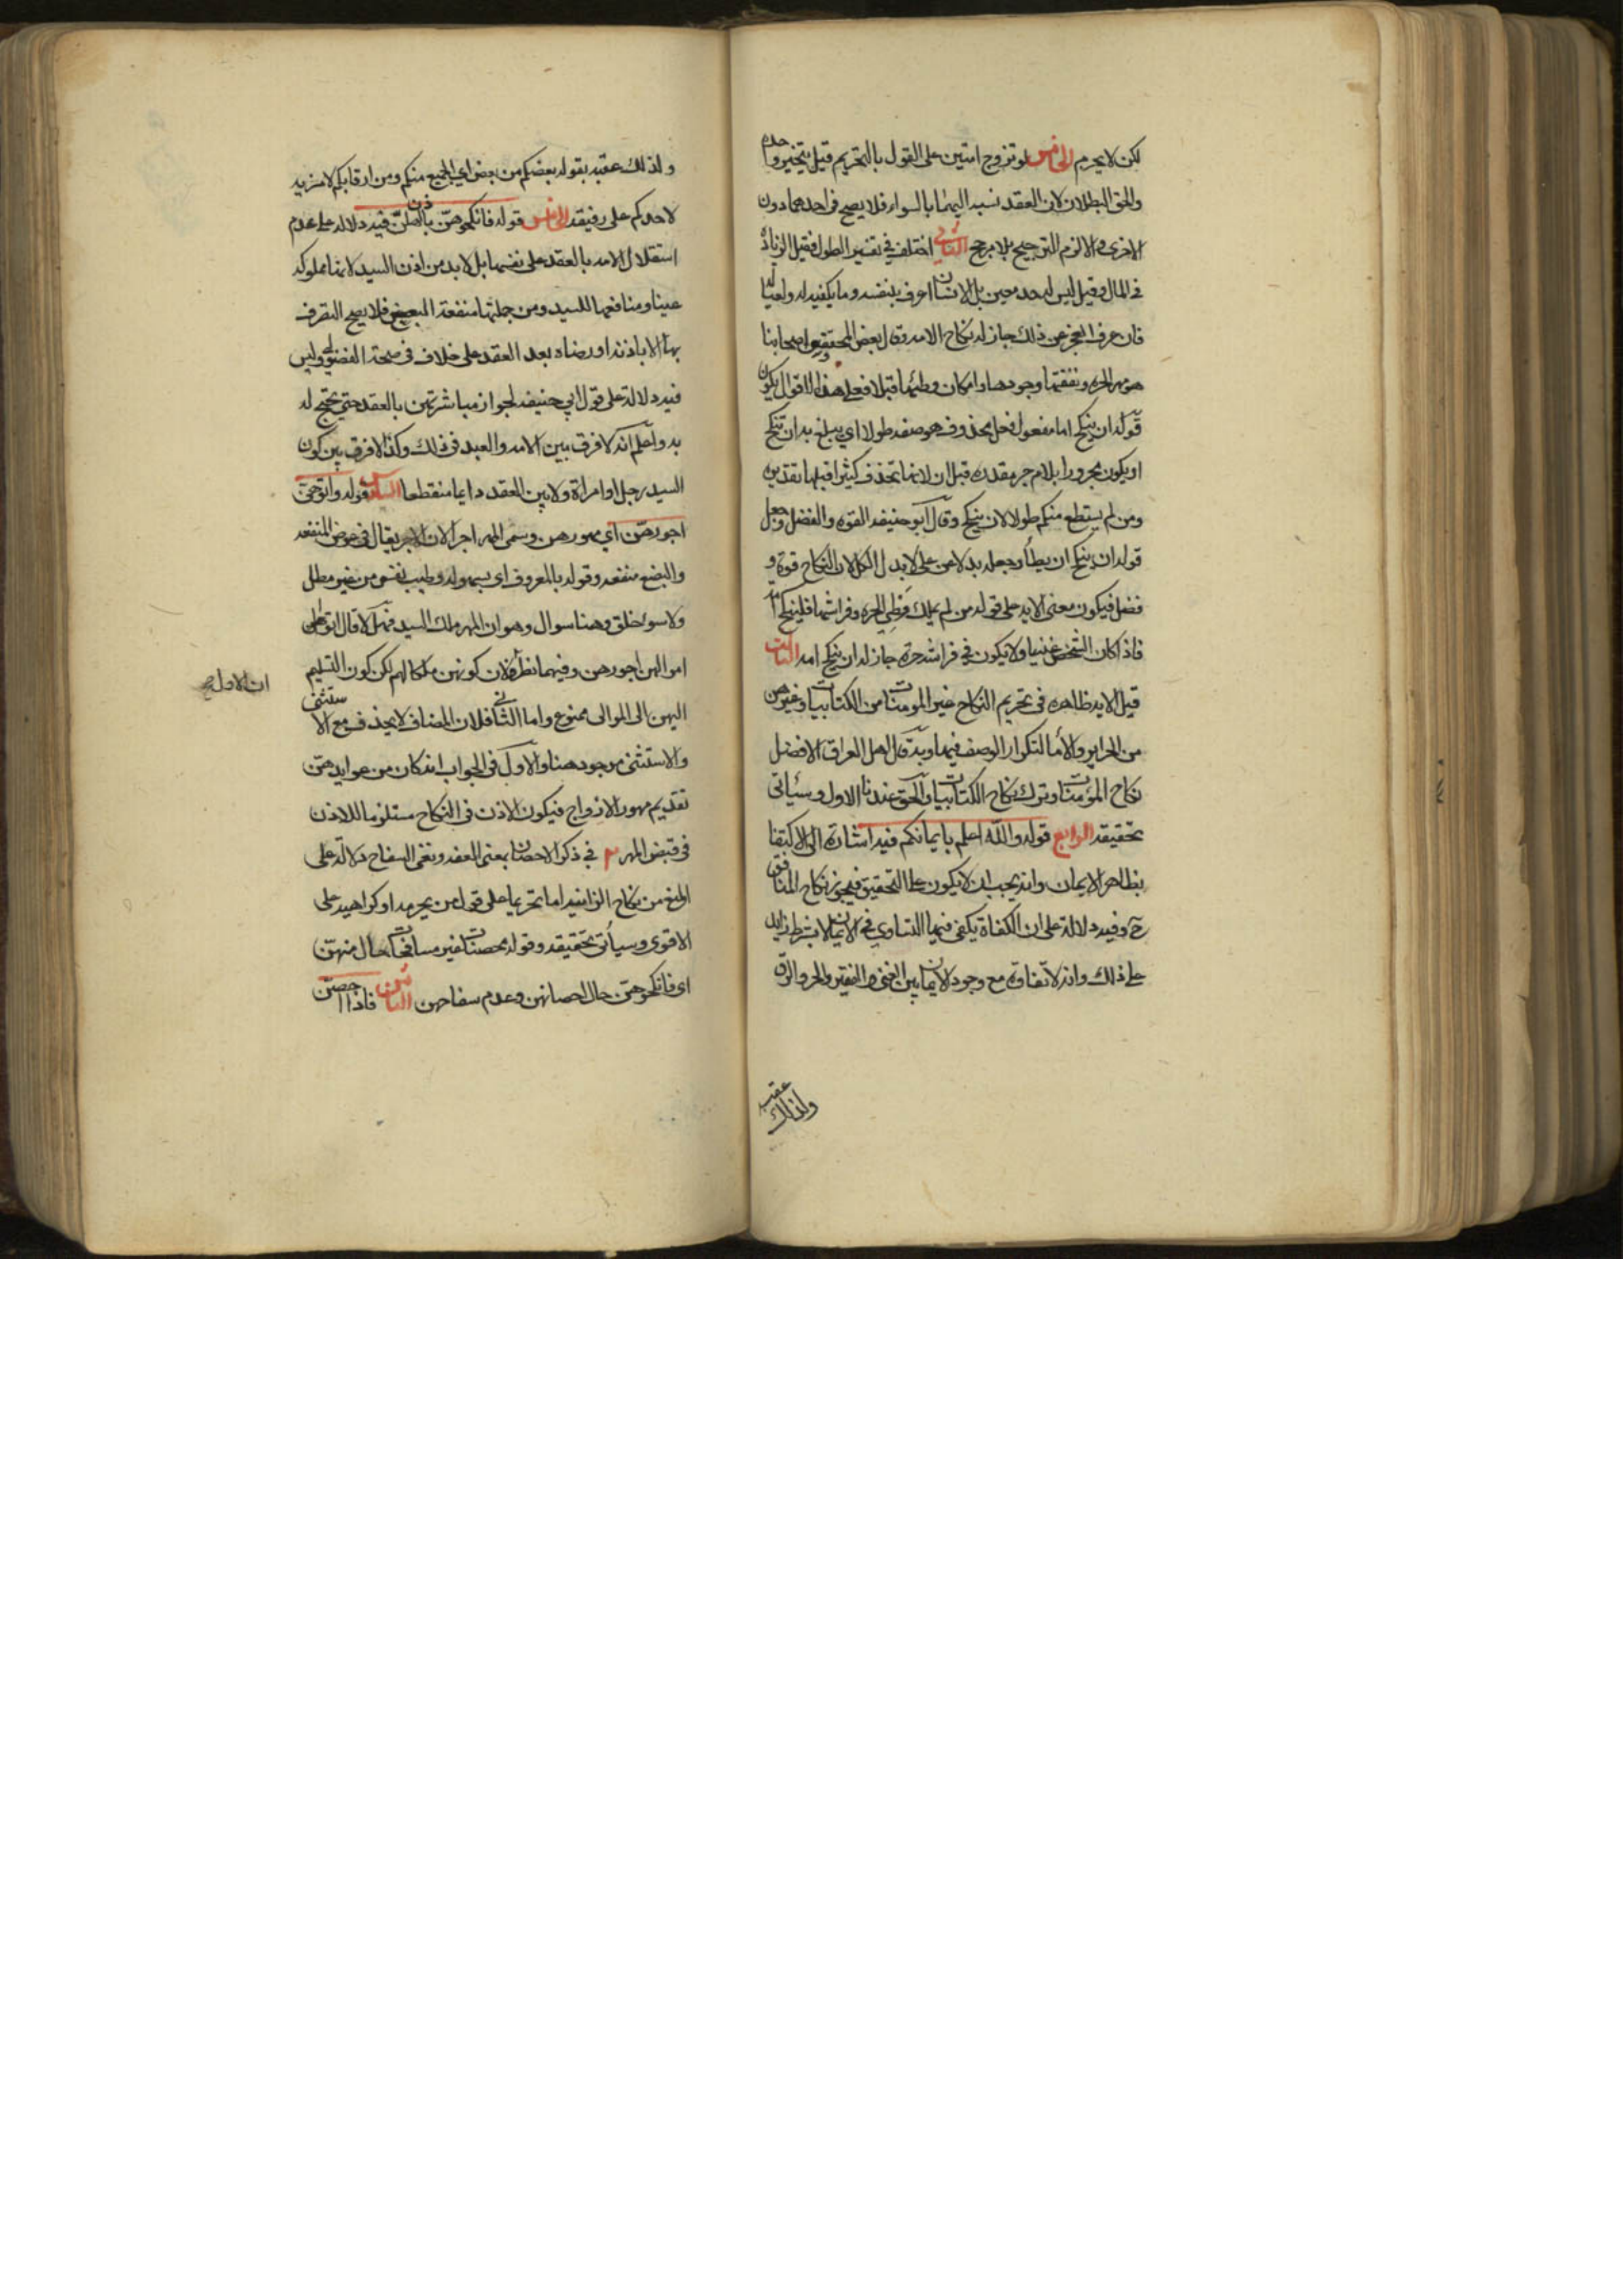 لكن لا يحرم الخامس لو تزوج امتين على القول بالتحريم قيل يتخير واحدة
والحق البطلان لان العقد نسبه اليهما بالسواء فلا يصح في احديهما دون
الاخرى والا لزم الترجيح بلا مرجح الثاني اختلف في تفسير الطول فقيل الزيادة
في المال وقيل ليس له حد معين بل الانسان اعرف بنفسه وما يكفيه له ولعياله
فان عرف العجز عن ذلك جاز له نكاح الامه وقال بعض المحققين من اصحابنا
هو مهر الحره ونفقتها ووجودها وامكان وطئها قبلا فعلى هذا الاقوال يكون
قوله ان ينكح اما مفعول فعل محذوف هو صفه طولا اي يبلغ به ان تنكح
او يكون مجرورا بلام جر مقدره قبل ان لانها تحذف كثيرا قبلها تقديره
ومن لم يستطع منكم طولا لان ينكح وقال ابو حنيفه القوه والفضل وجعل
قوله ان ينكح ان يطأ وجعله بدلا من طولا بدل الكل لان النكاح قوة و
فضل فيكون معنى الايه على قوله من لم يملك وطي الحره وفراشها فلينكح امة
فاذا كان الشخص غنيا ولا يكون في فراشه حرة جاز له ان ينكح امه الثالث
قيل الايه ظاهره في تحريم النكاح غير المومنات من الكتابيات وغيرهن
من الحراير والأما لتكرار الوصف فيهما وبه قال اهل العراق الافضل
نكاح المؤمنات وترك نكاح الكتابيات والحق عندنا الاول وسيأتى
تحقيقه الرابع قوله والله اعلم بايمانكم فيه اشارة الى الاكتفا
بظاهر الايمان وانه يجب ان لا يكون على التحقيق فيجوز نكاح المنافق
ح وفيه دلالة على ان الكفاة يكفى فيها التساوي في الايمان لا بشرط زايد
على ذلك وانه لا تفاوة مع وجود الايمان بين الغنى والفقير والحر والرق
ولذلك عقب
ولذلك عقبه بقوله بعضكم من بعض اي الجميع منكم ومن ارقابكم لا مزيد
لاحدكم على رفيقه الخامس قوله فانكحوهن باذن اهلهن فيه دلاله على عدم
استقلال الامه بالعقد على نفسها بل لا بد من اذن السيد لانها مملوكه
عينا ومنافعها للسيد ومن جملتها منفعة البضع فلا يصح التصرف
بها الا باذنه او رضاه بعد العقد على خلاف في صحة الفضولي وليس
فيه دلالة على قول ابي حنيفه لجواز مباشرتهن بالعقد حتى يحتج له
به واعلم انه لا فرق بين الامه والعبد في ذلك وكذا لا فرق بين كون
السيد رجل او امراة ولا بين العقد دايما منقطعا السادس قوله واتوهن
اجورهن اي مهورهن وسمى المهر اجرا لان الاجر يقال في عوض المنفعه
والبضع منفعه وقوله بالمعروف اى بسهوله وطيب نفس من غير مطل
ولا سوء خلق وهنا سوال وهو ان المهر ملك السيد فهلا قال اتوا
اموالهن اجورهن وفيهما نظر لان كونهن ملكا لهم لكن كون التسليم
ان الاول صح
اليهن الى الموالى ممنوع واما الثاني فلان المضاف لا يحذف مع الاستثنى
والاستثنى موجود هنا والاول في الجواب انه كان من عوايدهن
تقديم مهور الازواج فيكون الاذن في النكاح مستلزما للاذن
في قبض المهر في ذكر الاحصان بمعنى العفه ونفى السفاح دلالة على
المنع من نكاح الزانيه اما تحريما على قول من يحرمه او كراهيه على
الاقوى وسيأتى تحقيقه وقوله محصنات غير مسافحات حال منهن
اى فانكحوهن حال احصانهن وعدم سفاحهن الثامن فاذا احصن